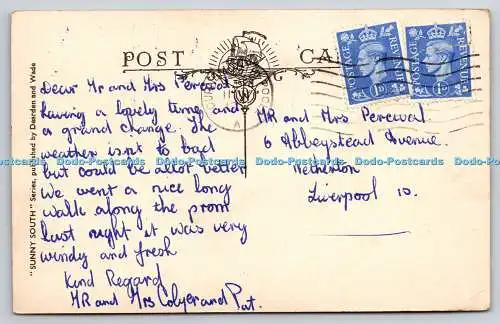 POST CA
Dear Mr and Mrs Percival
having a lovely time and
a grand change. The
weather isn't to bad
but could be allot better
We went a nice long
walk along the prom
last night it was very
windy and fresh
Kind Regard
MR and Mrs Colyer and Pat.
MR and Mrs Percival
6 Abbeystead Avenue.
Netherton
Liverpool 10.
POSTAGE REVENUE
1D
POSTAGE REVENUE
1D
"SUNNY SOUTH" Series, published by Dearden and Wade
Dodo-Postcards Dodo-Postcards Dodo-Postcards Dodo-Postcards Dodo-Postcards Dodo-Postcards